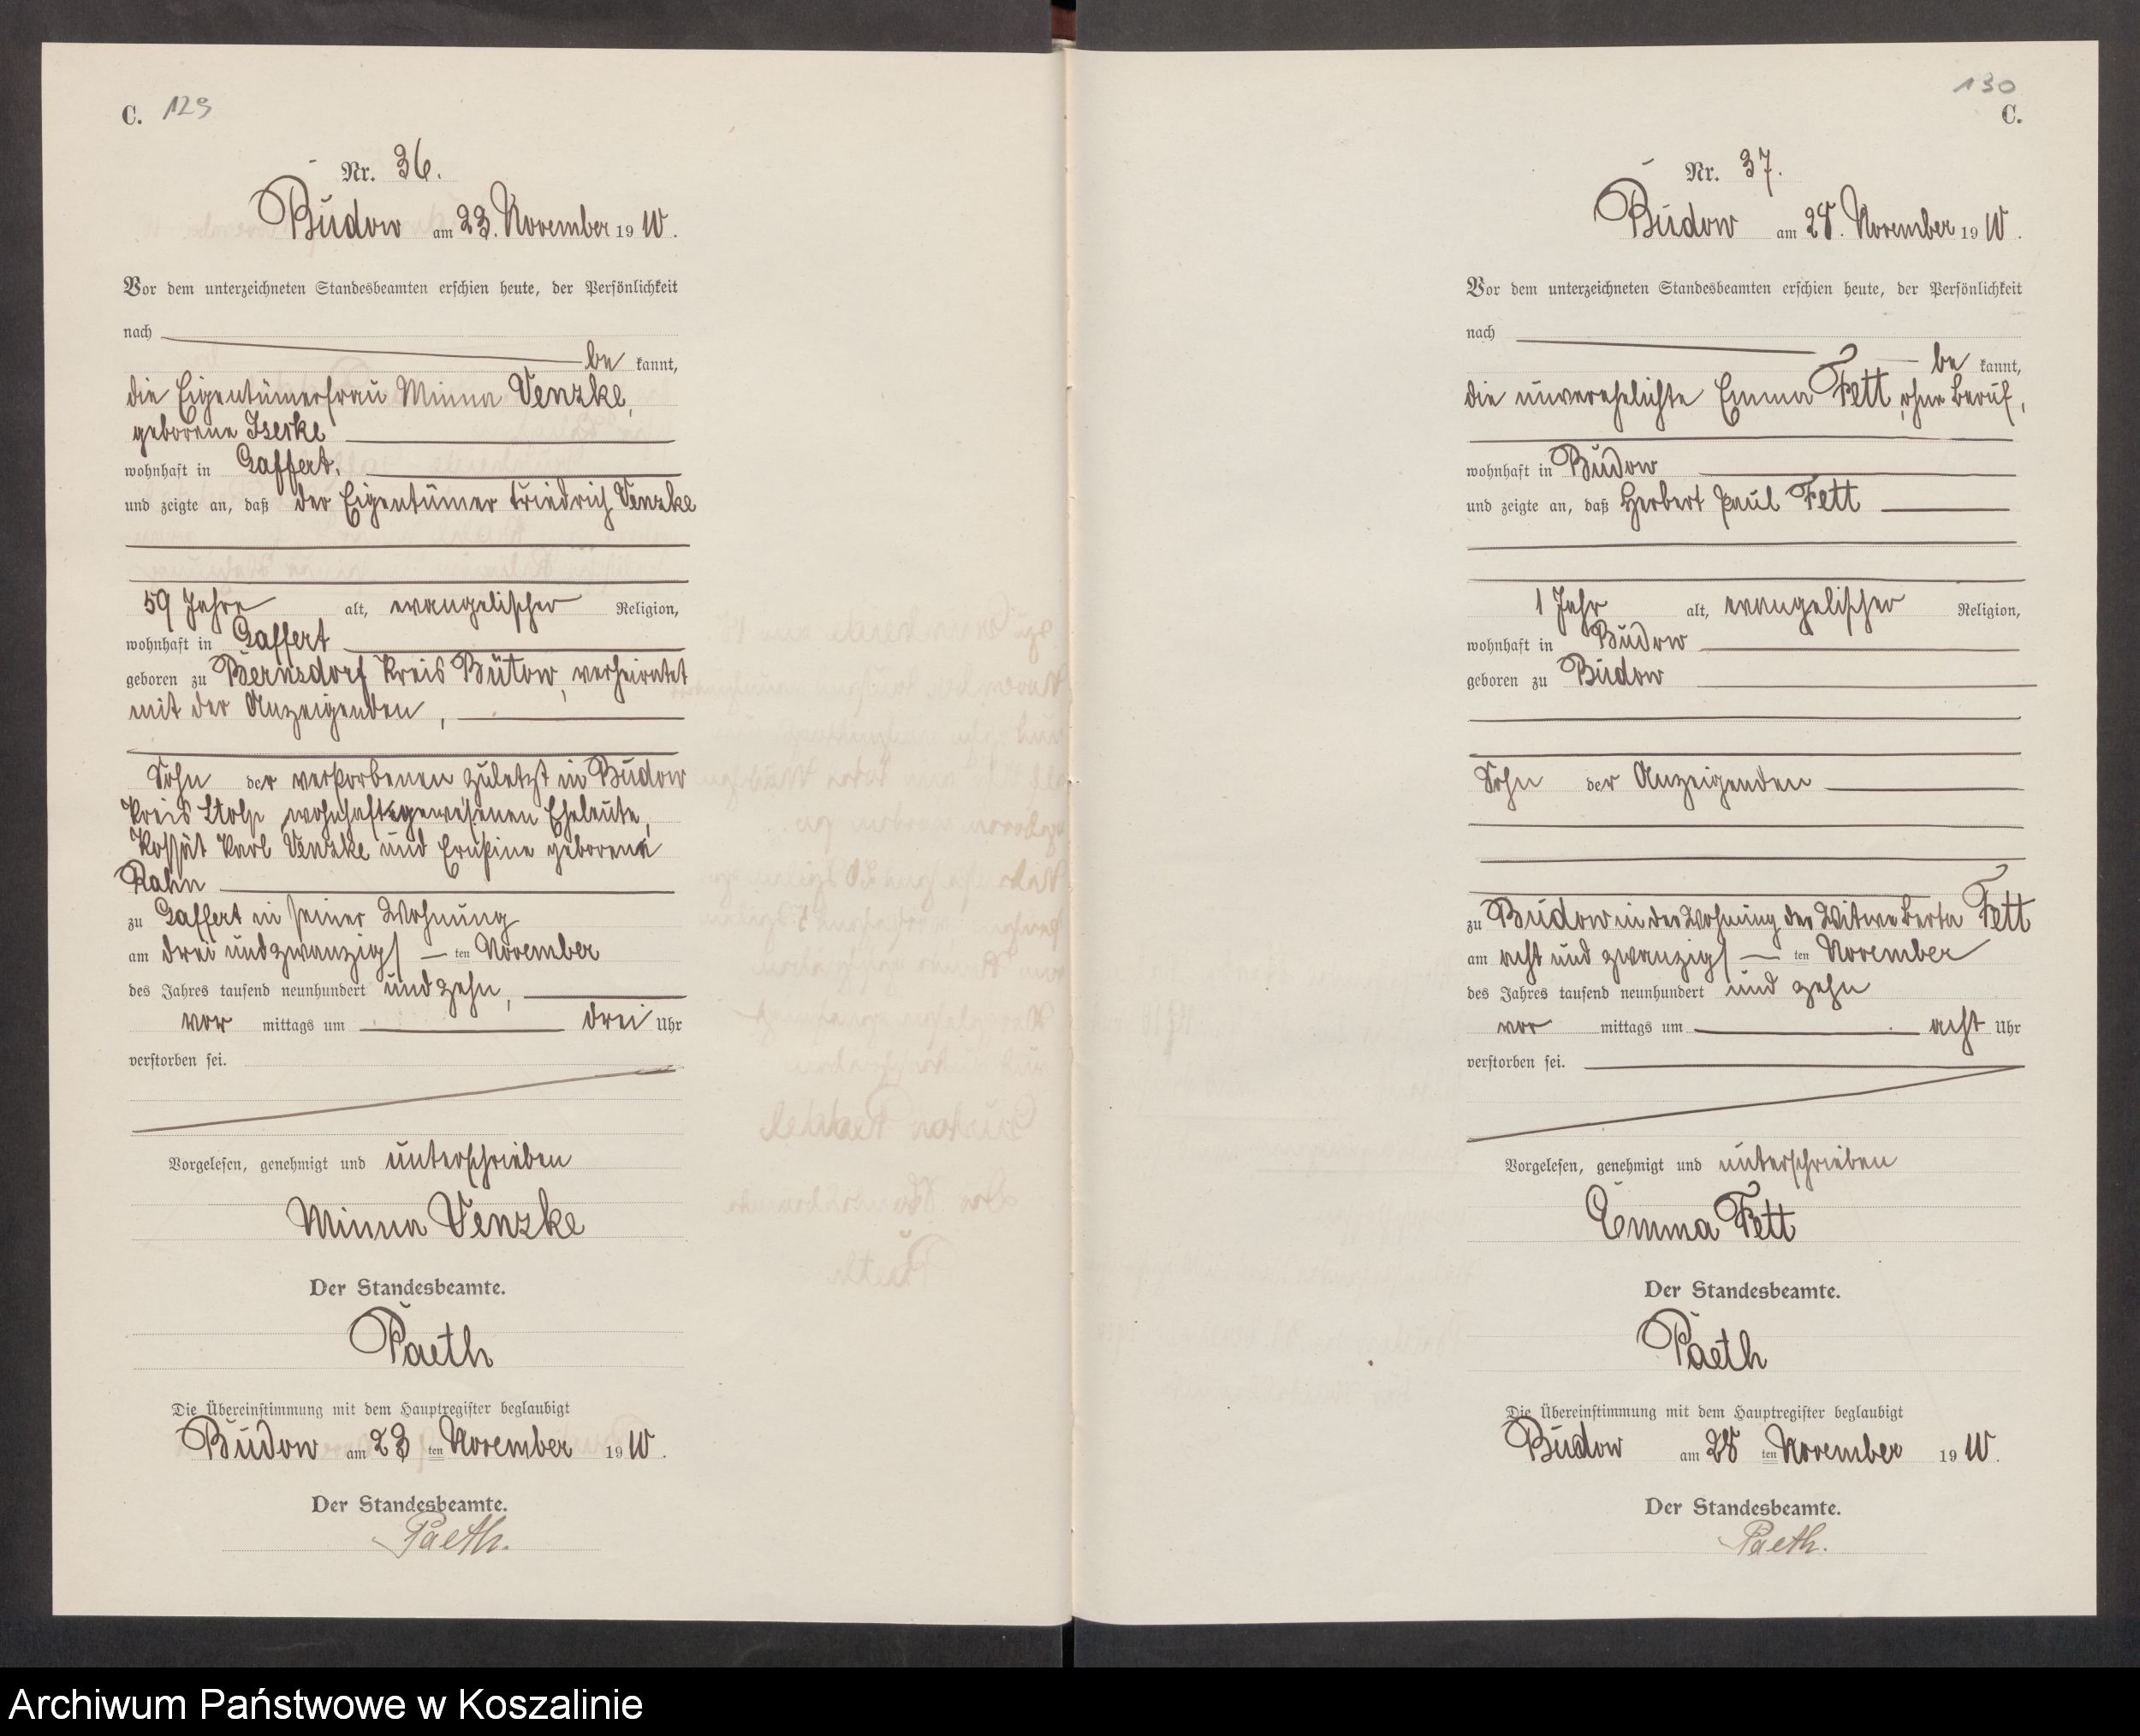 C. 129
Nr. 36.
Budow am 23. November 1910.
Vor dem unterzeichneten Standesbeamten erschien heute, der Persönlichkeit
nach
be kannt,
die Eigentümerfrau Minna Venzke,
geborene Iserke
wohnhaft in Gaffert,
und zeigte an, daß der Eigentümer Friedrich Venzke
59 Jahre alt, evangelischer Religion,
wohnhaft in Gaffert
geboren zu Bernsdorf Kreis Bütow, verheiratet
mit der Anzeigenden,
Sohn der verstorbenen zuletzt in Budow
Kreis Stolp wohnhaft gewesenen Eheleute,
Kossät Karl Venzke und Ernstine geborene
Rahn
zu Gaffert in seiner Wohnung
am drei und zwanzigs ten November
des Jahres tausend neunhundert und zehn,
vor mittags um drei Uhr
verstorben sei.
Vorgelesen, genehmigt und unterschrieben
Minna Venzke
Der Standesbeamte.
Paeth
Die Übereinstimmung mit dem Hauptregister beglaubigt
Budow am 23 ten November 1910.
Der Standesbeamte.
Paeth.
130
C.
Nr. 37.
Budow am 28. November 1910.
Vor dem unterzeichneten Standesbeamten erschien heute, der Persönlichkeit
nach
be kannt,
die unverehelichte Emma Fett, ohne Beruf,
wohnhaft in Budow
und zeigte an, daß Herbert Paul Fett
1 Jahr alt, evangelischer Religion,
wohnhaft in Budow
geboren zu Budow
Sohn der Anzeigenden
zu Budow in der Wohnung der Witwe Berta Fett
am acht und zwanzigs ten November
des Jahres tausend neunhundert und zehn
vor mittags um acht Uhr
verstorben sei.
Vorgelesen, genehmigt und unterschrieben
Emma Fett
Der Standesbeamte.
Paeth
Die Übereinstimmung mit dem Hauptregister beglaubigt
Budow am 28 ten November 1910.
Der Standesbeamte.
Paeth.
Archiwum Państwowe w Koszalinie